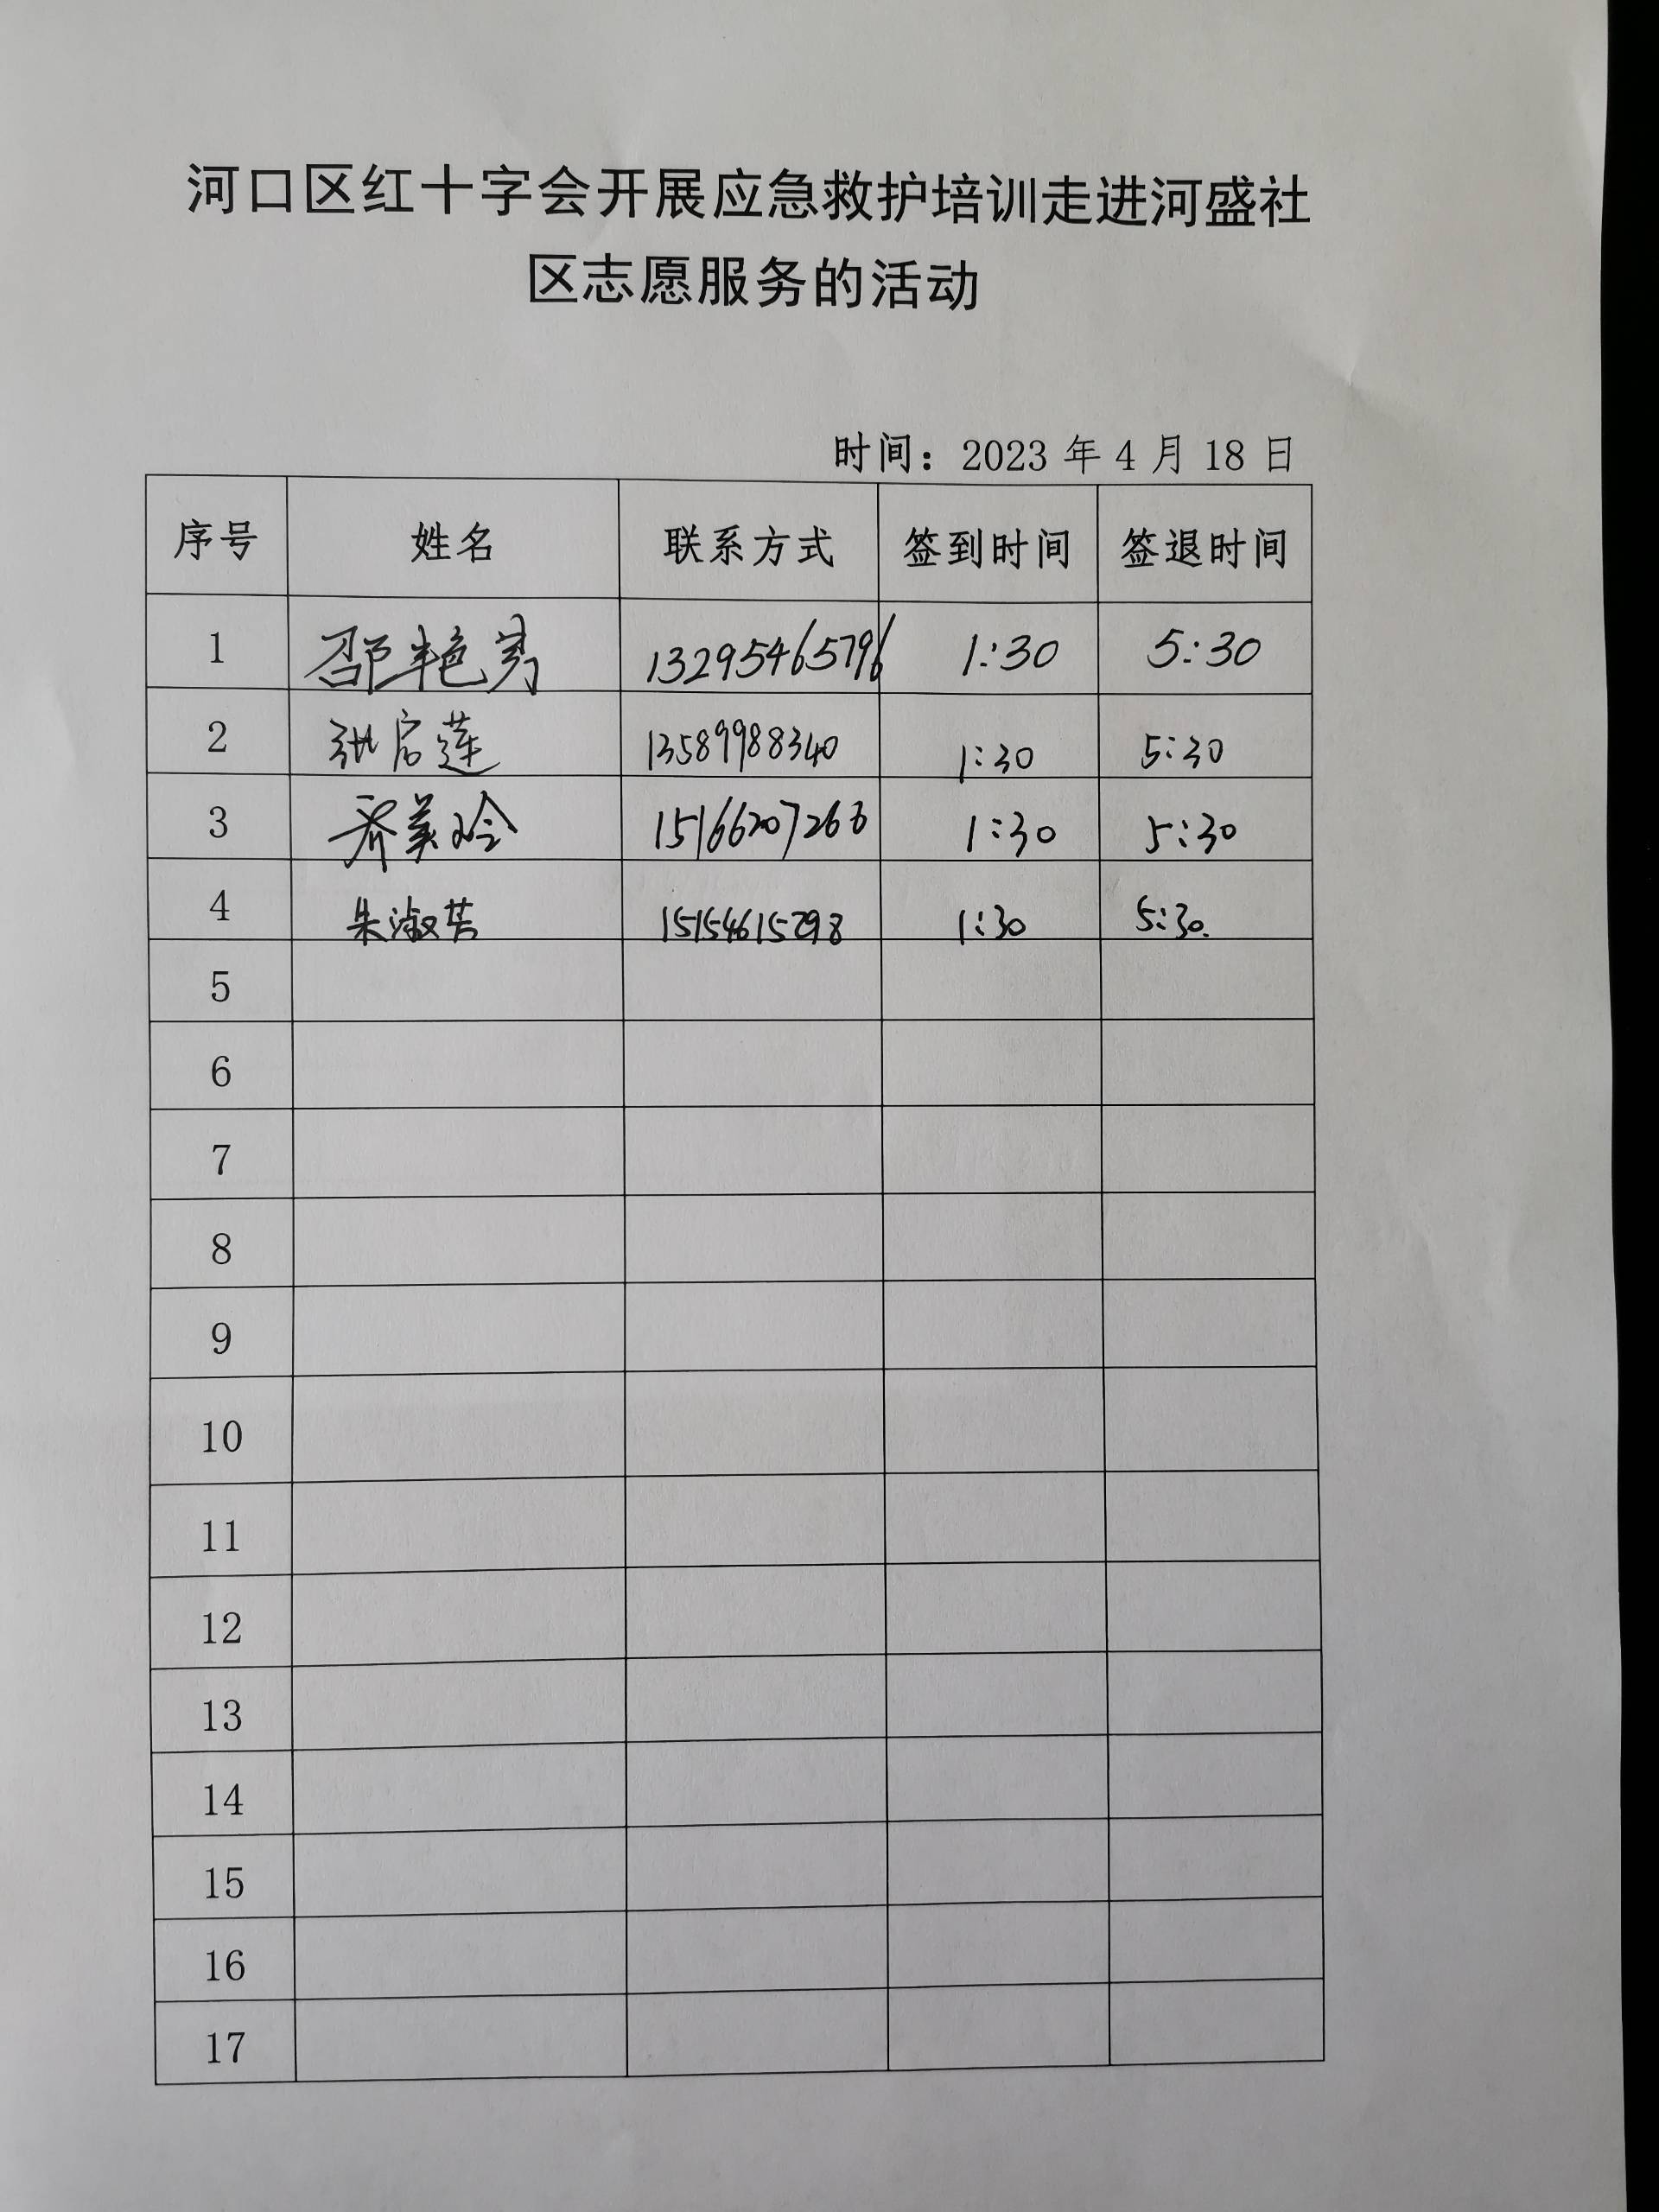 河口区红十字会开展应急救护培训走进河盛社
区志愿服务的活动
时间：2023 年 4 月 18 日
序号 姓名 联系方式 签到时间 签退时间
1 邵艳芳 13295465796 1:30 5:30
2 张启莲 13589988340 1:30 5:30
3 齐美玲 1516620726 1:30 5:30
4 朱淑芳 15154615298 1:30 5:30
5
6
7
8
9
10
11
12
13
14
15
16
17